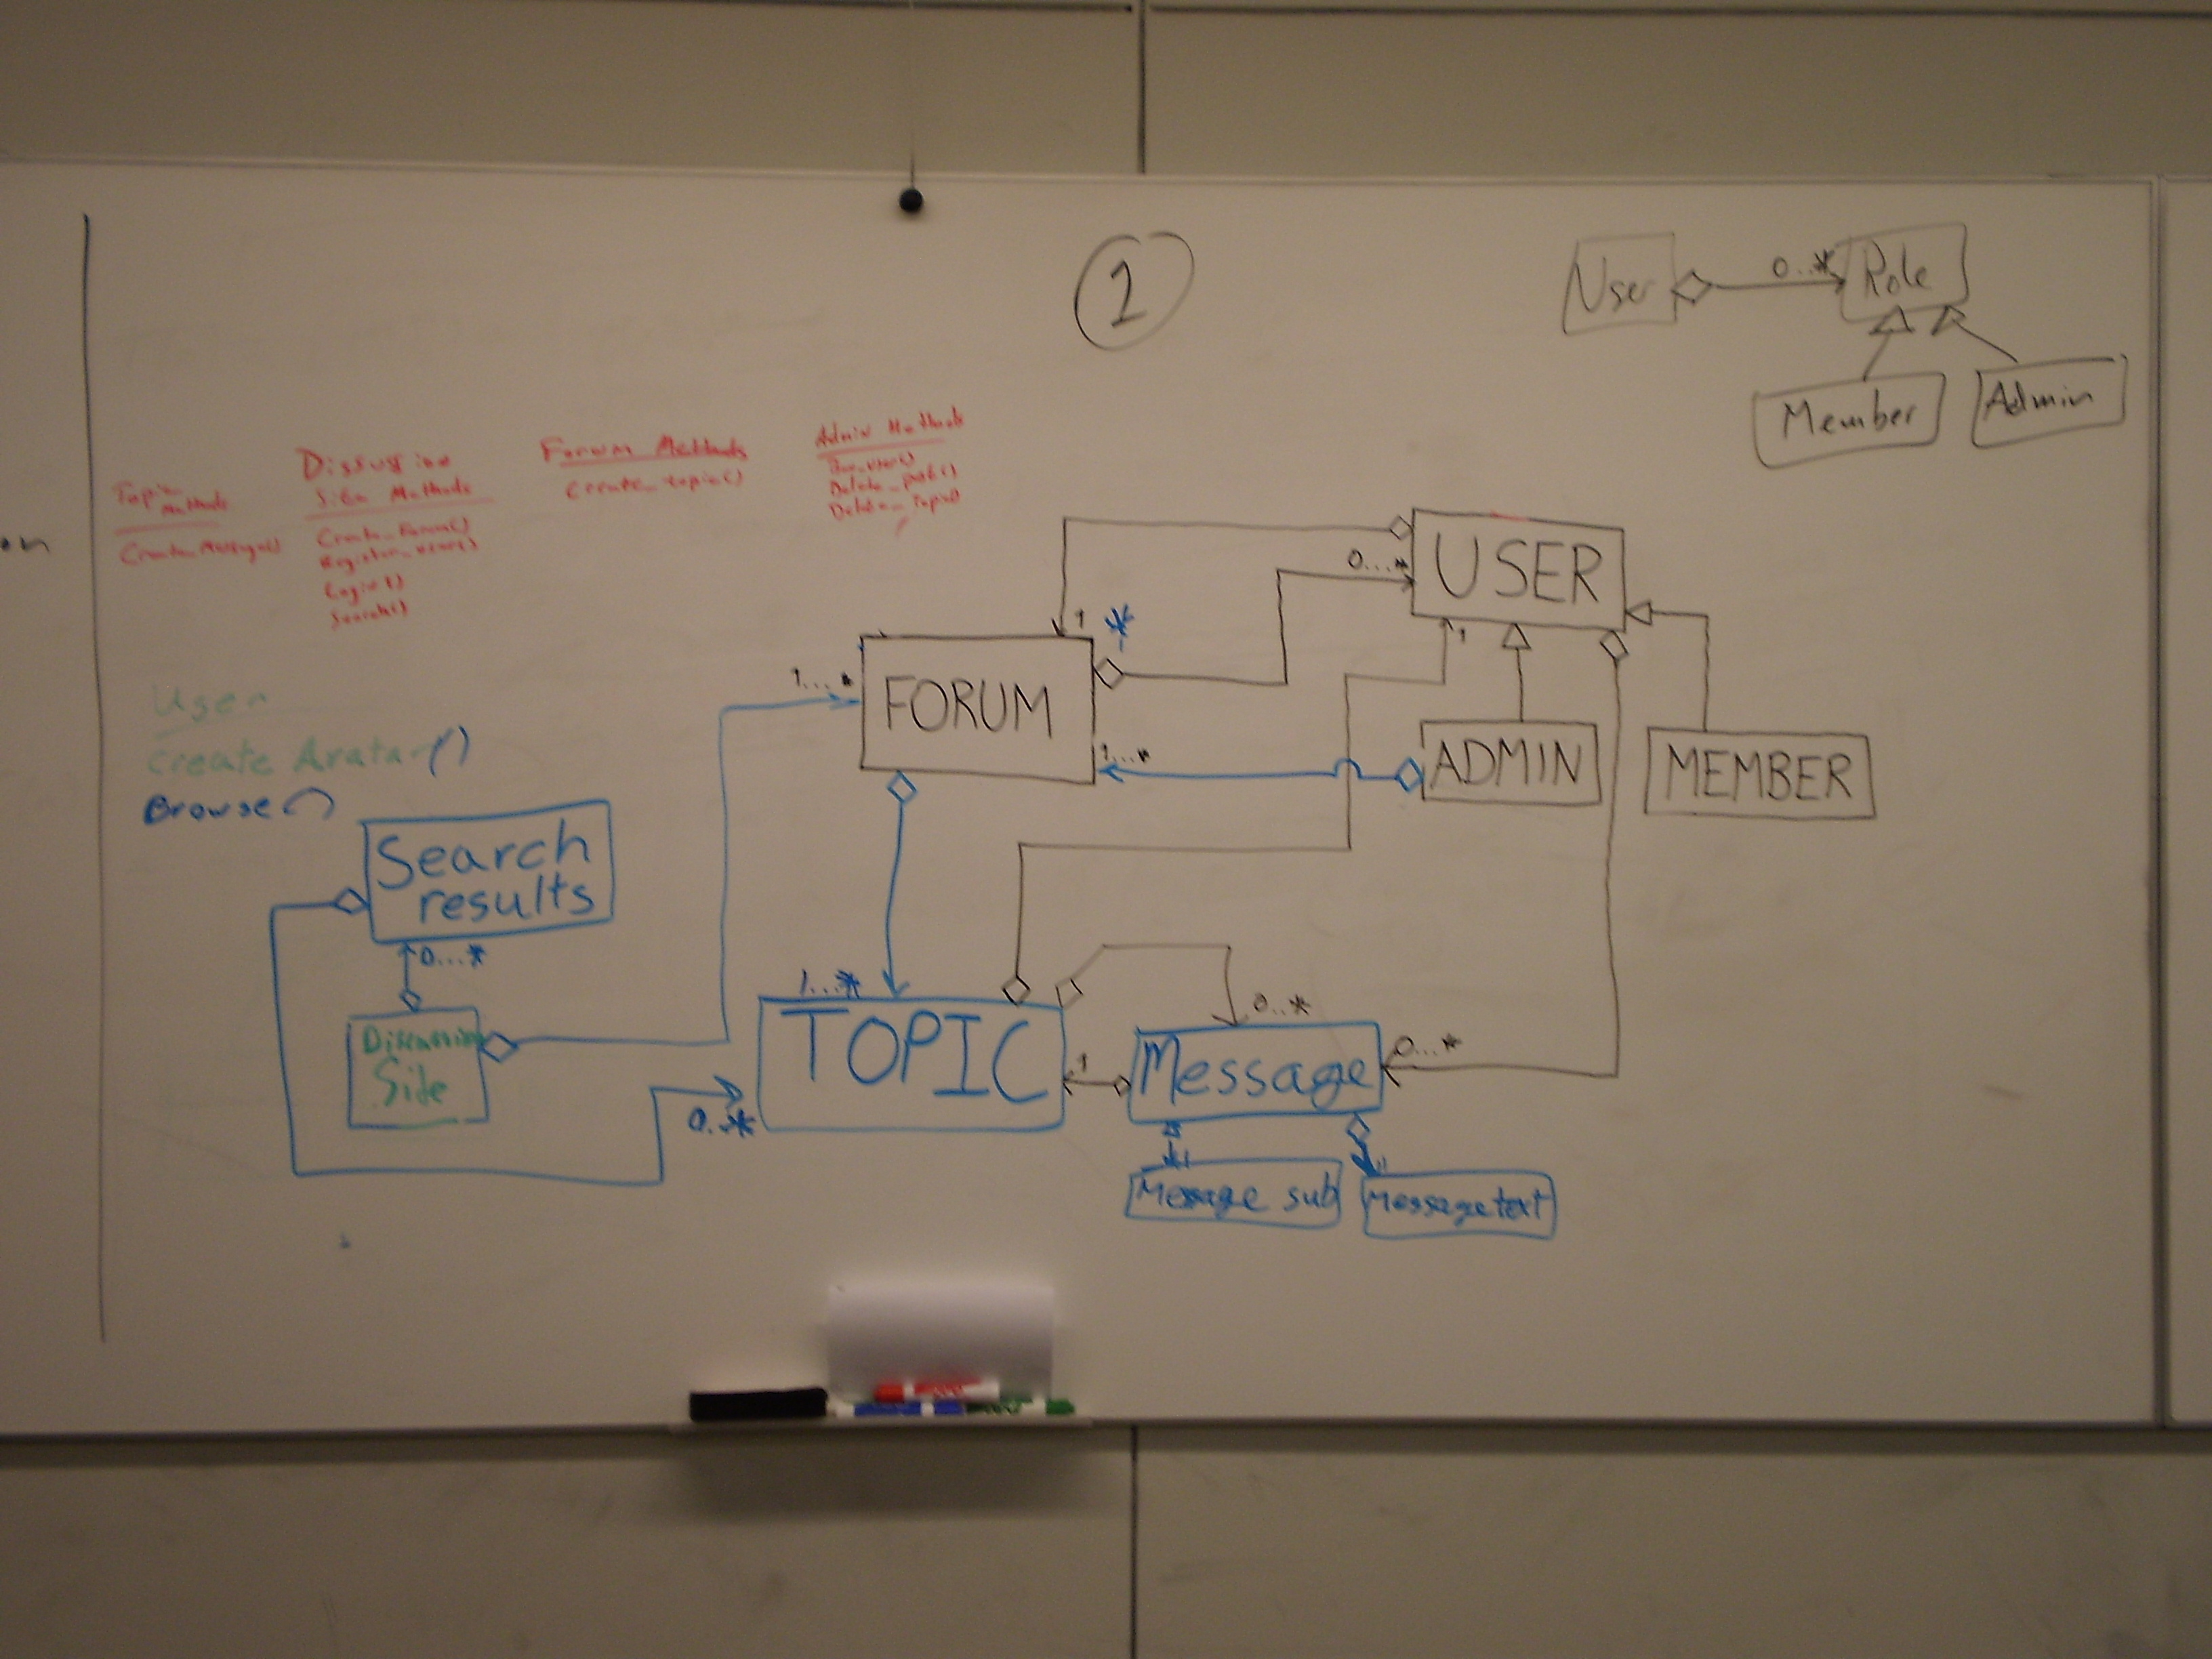 1
User
0..*
Role
Member
Admin
Topic
Methods
Create_Message()
Disscussion
Site Methods
Create_Forum()
Register_user()
Login()
Search()
Forum Methods
create_topic()
Admin Methods
Delete_post()
Delete_Topic()
on
User
create Avatar()
Browse()
USER
0...*
1
*
1
1...*
FORUM
1...*
ADMIN
MEMBER
Search
results
0...*
Discussion
Site
1...*
TOPIC
0..*
0...*
0...*
1
Message
1
1
Message sub
Message text